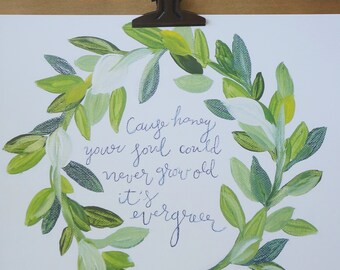 Cause honey
your soul could
never grow old
it's
evergreen